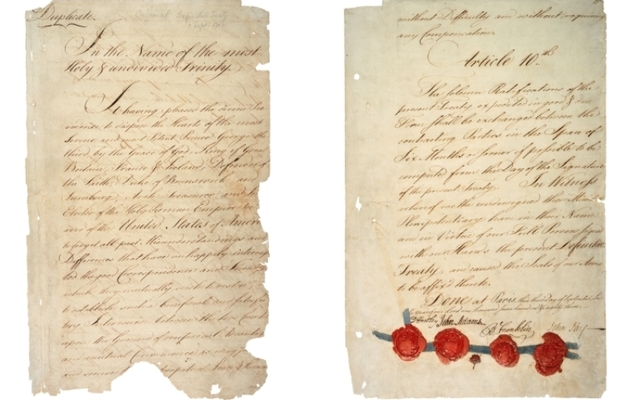 Duplicate.
In the Name of the most
Holy & undivided Trinity.
It having pleased the divine Pro-
vidence to dispose the Hearts of the most
Serene and most Potent Prince George the
third, by the Grace of God, King of Great
Britain, France & Ireland, Defender of
the Faith, Duke of Brunswick and
Lunebourg, Arch Treasurer and
Elector of the Holy Roman Empire
and of the United States of America
to forget all past Misunderstandings and
Differences that have unhappily
ted the good Correspondence and
which they mutually wish to
to establish such a beneficial and satisfactory
Intercourse between the two Countries
upon the Ground of reciprocal Advantages
and mutual Convenience as may
and secure to both perpetual Peace &
without Difficulty and without requiring
any Compensation.
Article 10th.
The solemn Ratifications of the
present Treaty expedited in good & due
Form shall be exchanged between the
contracting Parties in the Space of
Six Months or sooner if possible to be
computed from the Day of the Signature
of the present Treaty. In Witness
whereof we the undersigned their Ministers
Plenipotentiary have in their Name
and in Virtue of our Full Powers signed
with our Hands the present Definitive
Treaty, and caused the Seals of our Arms
to be affix'd thereto.
Done at Paris, this third Day of September
John Adams
B Franklin
John Jay